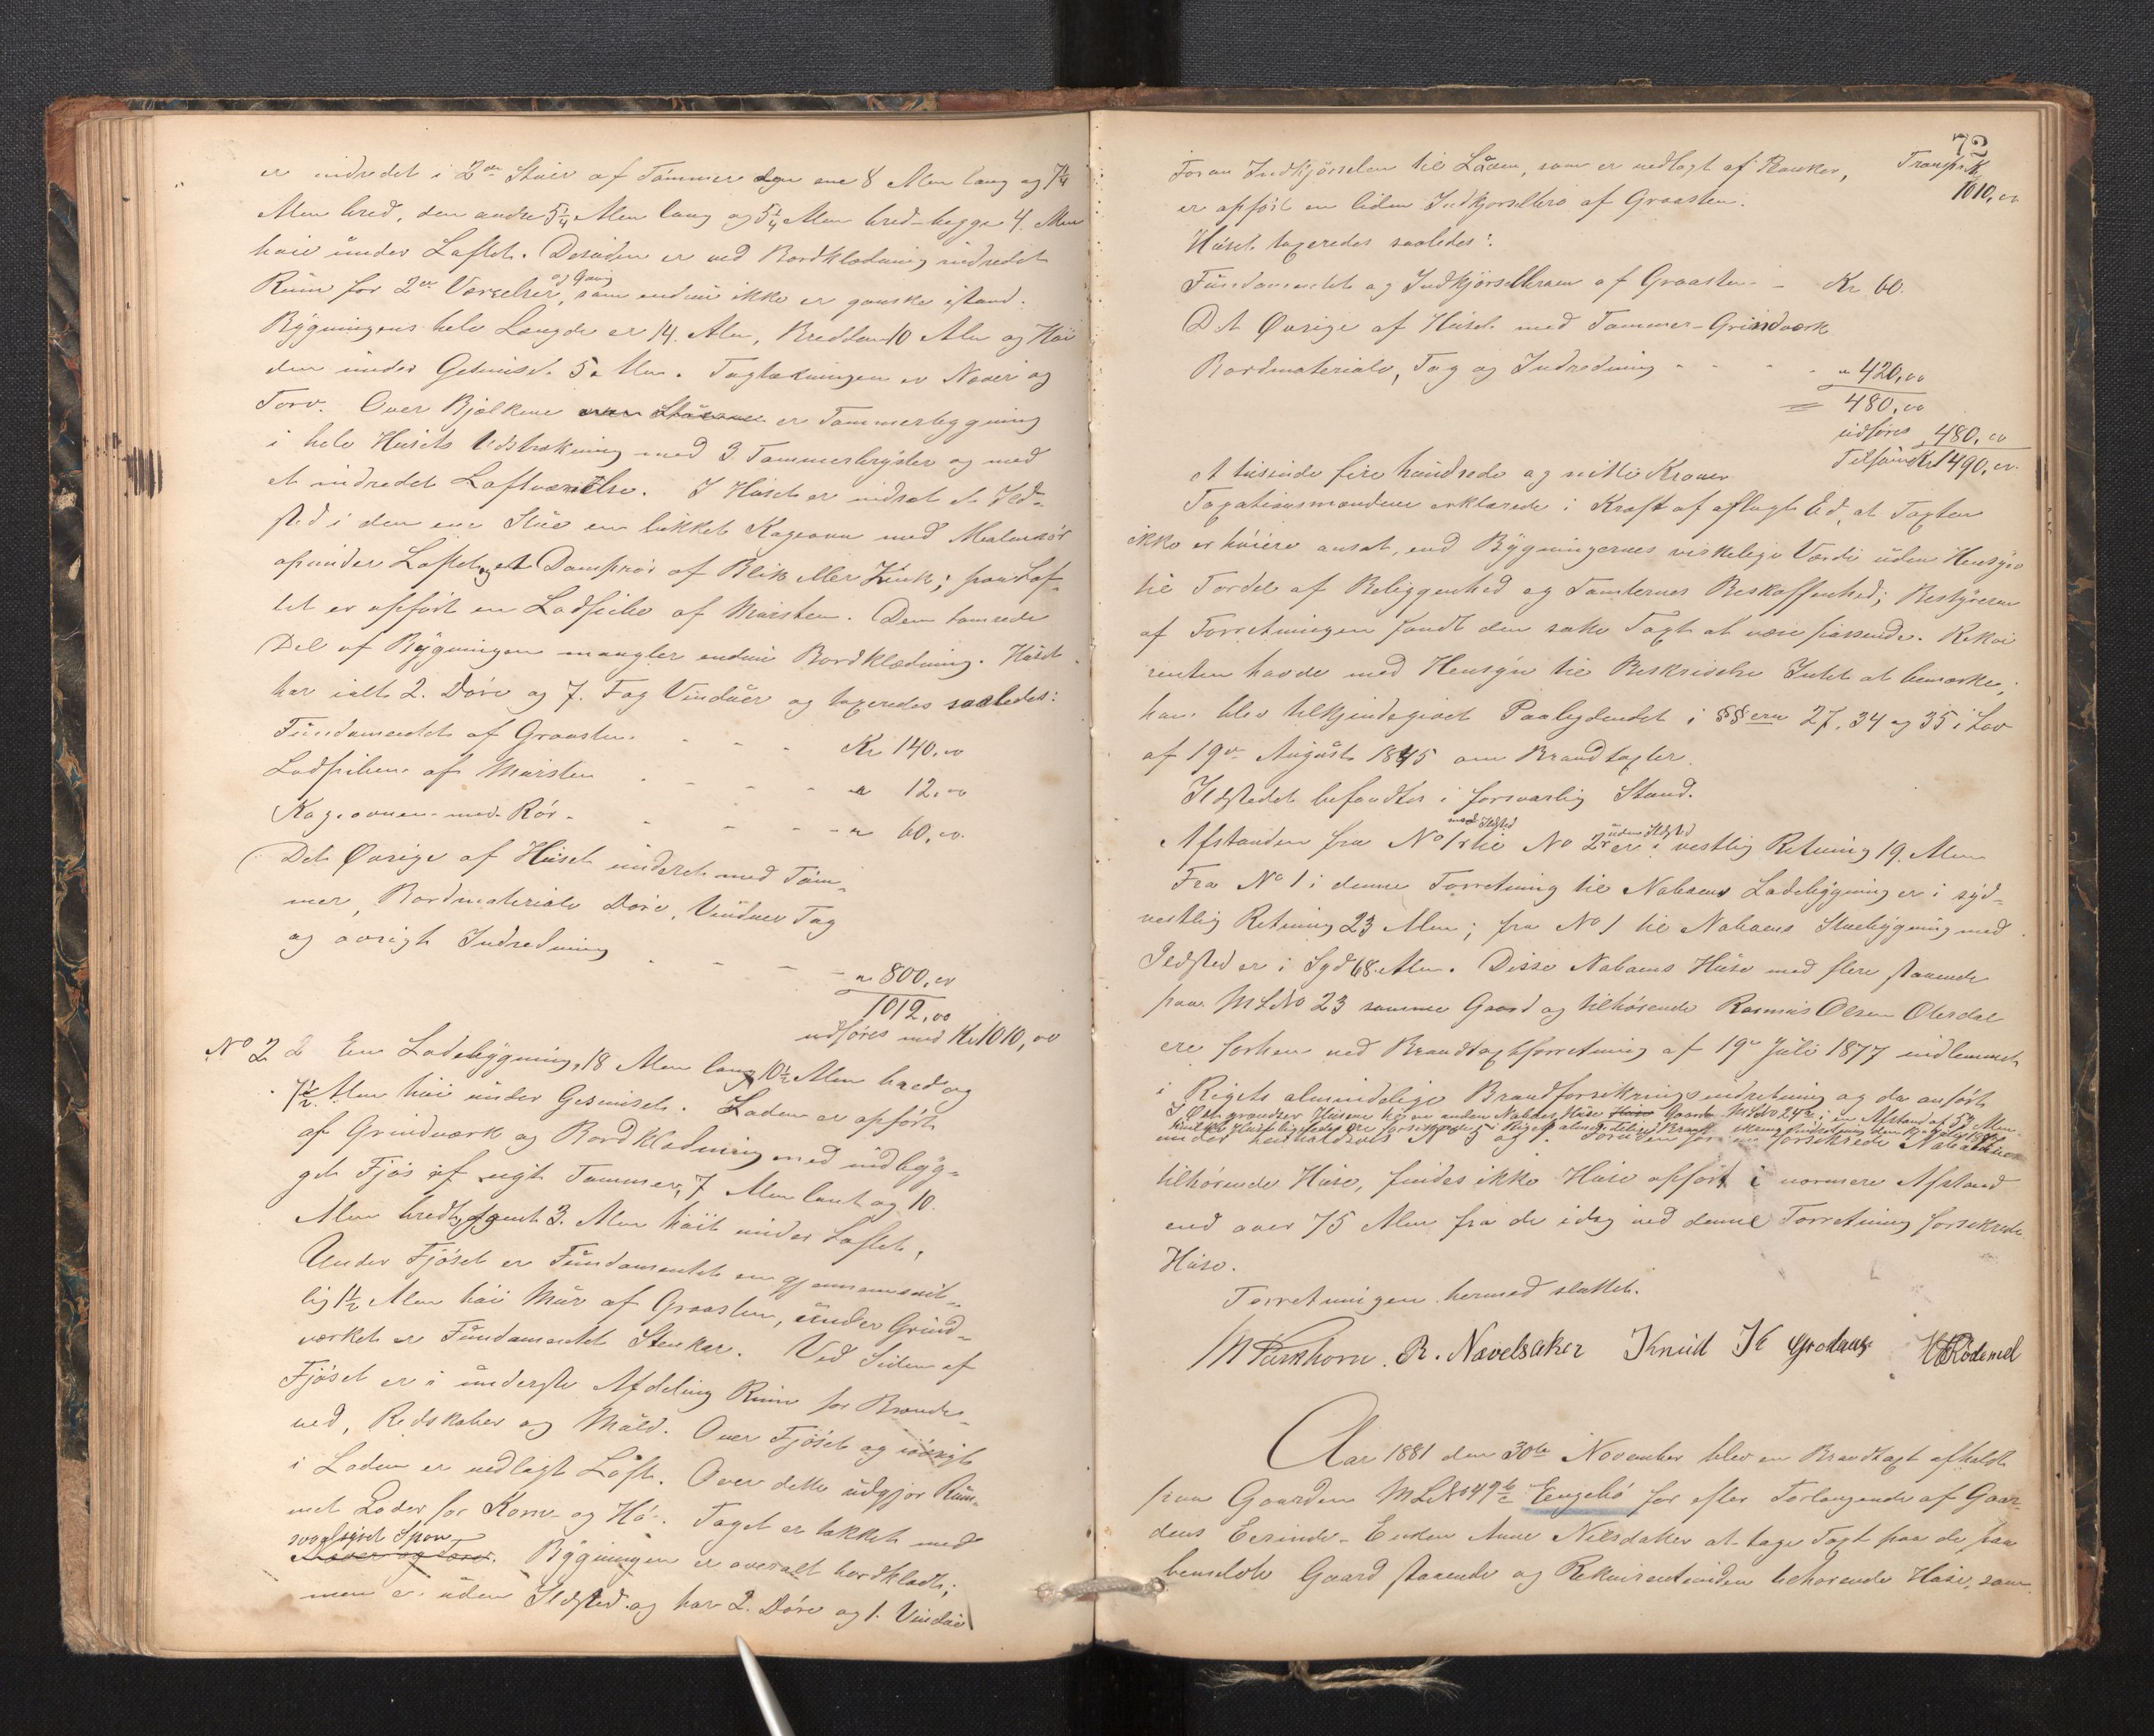 er indredet i 2de Stuer af Tømmer den ene 8 Alen lang og 7 1/4
Alen bred, den anden 5 1/4 Alen lang og 5 1/4 Alen bred – begge 4 Alen
høie under Loftet. Desuden er ved Bordklædning indredet
Rum for 2de Værelser og Gang, som endnu ikke er ganske istand.
Bygningens hele Længde er 14 Alen, Bredden 10 Alen og Høi
den under Gesimset 5 Alen. Tagtækningen er Næver og
Torv. Over Bjælkene over Stuerne er Tømmerbygning
i hele Husets Udstrækning med 3 Tømmerbryster og med
et indredet Loftværelse. I Huset er indsat et Ild-
sted i den ene Stue en lukket Kageovn med Malmrør
op under Loftet og et Damprør af Blik eller Zink; paa Lof-
tet er opført en Ladpibe af Mursten. Den tømrede
Del af Bygningen mangler endnu Bordklædning. Huset
har ialt 2 Døre og 7 Fag Vinduer og taxeredes saaledes:
Fundamentet af Graasten - - - Kr 140,00
Ladpiben af Mursten - - - " 12,00
Kageovnen med Rør - - - " 60,00
Det Øvrige af Huset indredet med Tøm-
mer, Bordmateriale Døre, Vinduer Tag
og øvrigt Indredning - - - " 800,00
1012,00
udføres med Kr 1010,00
No 2 En Ladebygning, 18 Alen lang 10 1/2 Alen bred og
7 1/2 Alen høi under Gesimset. Laden er opført
af Grindværk og Bordklædning med indbyg-
get Fjøs af nyt Tømmer, 7 Alen langt og 10
Alen bredt, samt 3 Alen høit under Loftet.
Under Fjøset er Fundamentet en gjennemsnit-
lig 1 1/2 Alen høi Mur af Graasten, under Grind-
værket er Fundamentet Stenkar. Ved Siden af
Fjøset er i underste Afdeling Rum for Brænde-
ved, Redskaber og Muld. Over Fjøset og iøvrigt
i Laden er nedlagt Loft. Over dette udgjør Rum-
met Lader for Korn og Hø. Taget er tækket med
svovlsyret Spon
Næver og Torv. Bygningen er overalt bordklædt;
men er uden Ildsted og har 2 Døre og 1 Vindue
72
Foran Indkjørselen til Laaen, som er nedlagt af Planker, Transp. Kr
er opført en liden Indkjørselbro af Graasten. 1010,00
Huset taxeredes saaledes:
Fundamentet og Indkjørselbroen af Graasten - Kr 60.
Det Øvrige af Huset med Tømmer-Grindværk
Bordmateriale, Tag og Indredning - - - " 420,00
= 480,00
udføres 480,00
Tilsammen Kr 1490,00
et tusinde fire hundrede og nitti Kroner
Taxationsmændene erklærede i Kraft af aflagt Ed, at Taxten
ikke er høiere ansat, end Bygningernes virkelige Værdi uden Hensyn
til Fordel af Beliggenhed og Tomternes Beskaffenhed; Bestyreren
af Forretningen fandt den satte Taxt at være passende. Rekvi
renten havde med Hensyn til Beskrivelse Intet at bemærke;
han blev tilkjendegivet Paalydendet i §§erne 27, 34 og 35 i Lov
af 19de August 1845 om Brandtaxter.
Ildstedet befandtes i forsvarlig Stand.
Afstanden fra No 1 med Ildsted til No 2 uden Ildsted er i vestlig Retning 19 Alen
Fra No 1 i denne Forretning til Naboens Ladebygning er i syd-
vestlig Retning 23 Alen; fra No 1 til Naboens Stuebygning med
Ildsted er i Syd 68 Alen. Disse Naboens Huse med flere staaende
paa MLNo 23 samme Gaard og tilhørende Rasmus Olsen Oterdal
ere forhen ved Brandtaxtforretning af 19de Juli 1877 indlemmet
i Rigets almindelige Brandforsikringsindretning og da anført
I Øst grændser Husene til en anden Nabos Huse Huse Gaard MLNo 24 i en Afstand af 59 Alen
under forsikrede Naboens
tilhørende Huse, findes ikke Huse opført i nærmere Afstand
end over 75 Alen fra de idag ved denne Forretning forsikrede
Huse.
Forretningen hermed sluttet.
M Parkhorn. R. Navelsaker Knud K Grodaas H Rødemel
Aar 1881 den 30te November blev en Brandtaxt afholdt
paa Gaarden MLNo 49b Eengebø for efter Forlangende af Gaar-
dens Eerinde – Enken Anne Nilsdatter at tage Taxt paa de paa
bemeldte Gaard staaende og Rekvirentinden tilhørende Huse, som